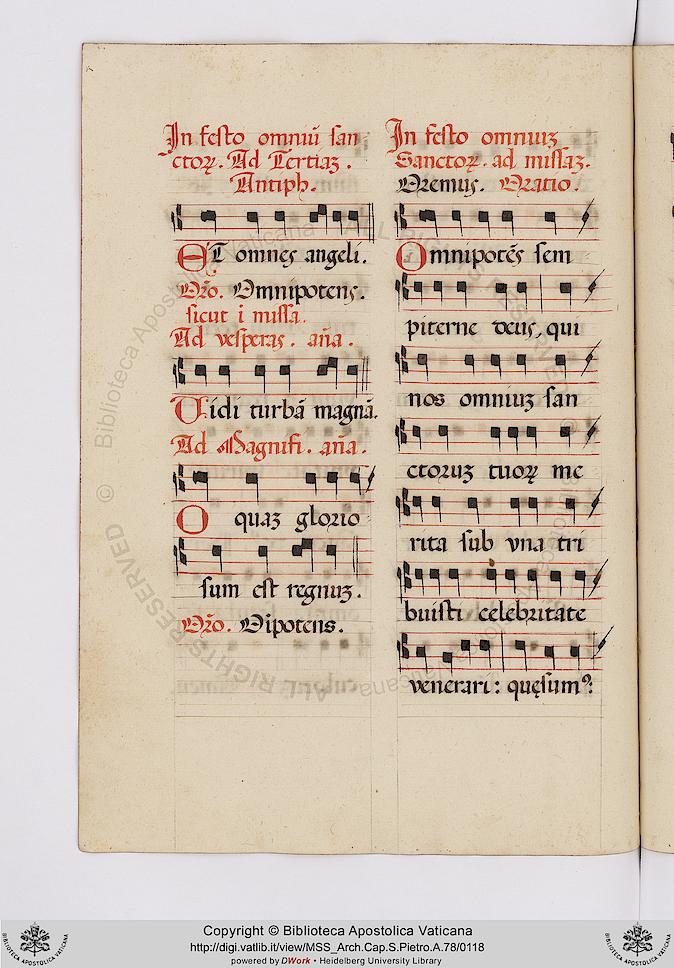 In festo omniũ san
ctoꝝ. Ad Tertiaꝫ.
Antiph.
ET omnes angeli.
Orõ. Omnipotens.
sicut ĩ missa.
Ad vesperas. añа.
Vidi turbã magnã.
Ad Magnifi. aña.
O quaꝫ glorio
sum est regnuꝫ.
Orõ. Oĩpotens.
In festo omniuꝫ
Sanctoꝝ. ad missaꝫ.
Oremus. Oratio.
Omnipotẽs sem
piterne deus, qui
nos omniuꝫ san
ctoruꝫ tuoꝝ me
rita sub vna tri
buisti celebritate
venerari: quęsumꝰ:
© Biblioteca Apostolica Vaticana
ALL RIGHTS RESERVED
Copyright © Biblioteca Apostolica Vaticana
http://digi.vatlib.it/view/MSS_Arch.Cap.S.Pietro.A.78/0118
powered by DWork • Heidelberg University Library
BIBLIOTECA APOSTOLICA VATICANA
BIBLIOTECA APOSTOLICA VATICANA